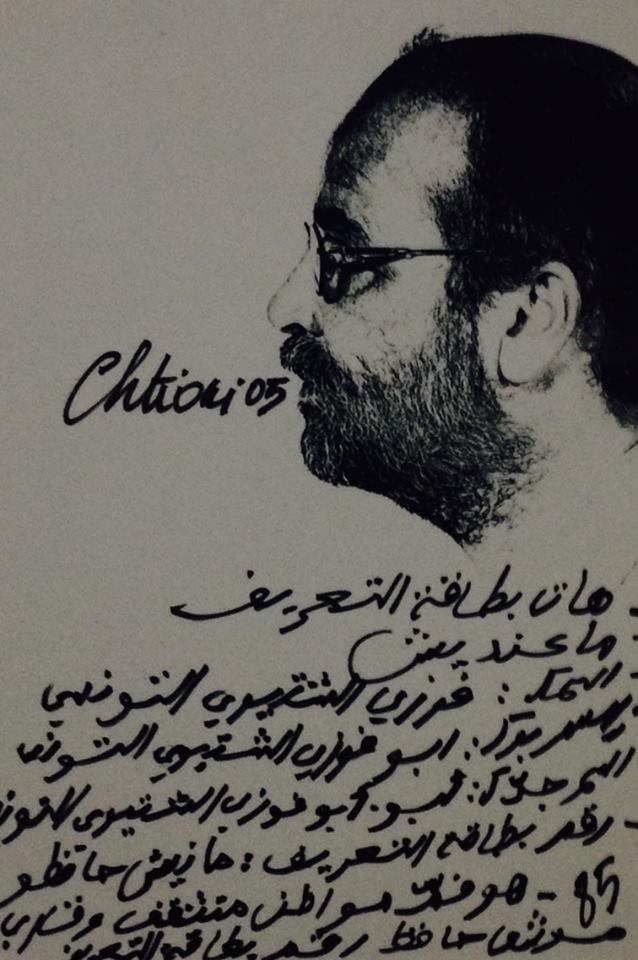 Chtioui 05
هات بطاقة التعريف
ما عنديش
اسمك : فوزي الشتيوي التونسي
اسم بوك : ابو فوزي الشتيوي التونسي
اسم جدّك : بو أبو فوزي الشتيوي التونسي
رقم بطاقة التعريف : مانيش حافظو
هو فمّاش مواطن مثقف وقاري
موش حافظ رقم بطاقة التعريف